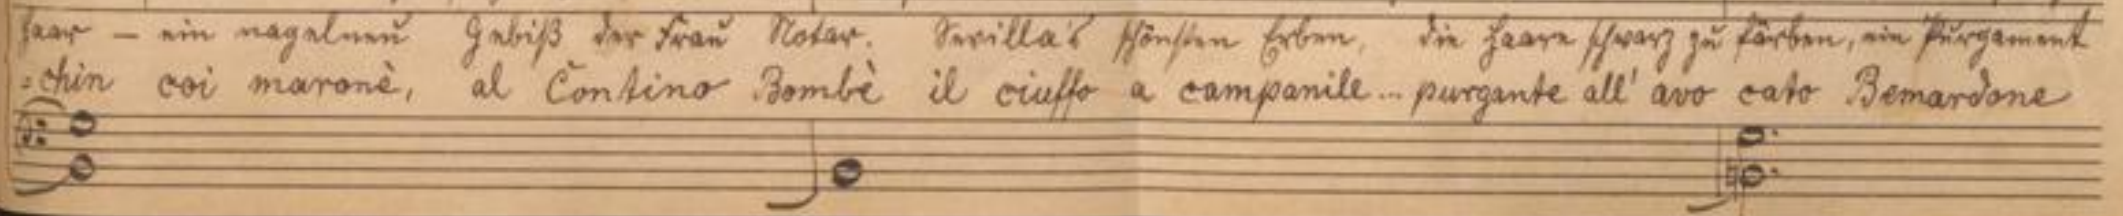 haar – ein nagelneu Gebiß der Frau Notar. Sevilla's schönsten Erben, die Haare schwarz zu färben, ein Purgament
=chin coi maronè, al Contino Bombè il ciuffo a campanile... purgante all' avo cato Bemardone